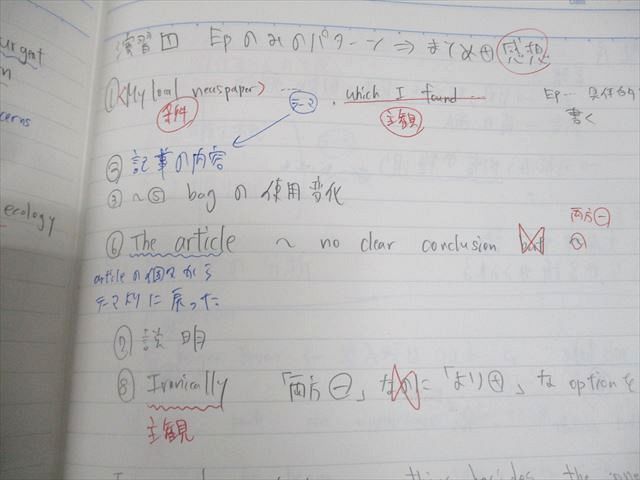 urgent
n
cerns
ecology
演習四 Epのみのパターン ⇒ まとめ⊕感想
①〈My local newspaper〉… テーマ , which I found … Ep… 具体的に
条件 主観 書く
② 記事の内容
③ ~⑤ bag の 使用 変化
両方⊖
⑥ The article ~ no clear conclusion but
articleの個々から
テーマよりに戻った
⑦ 説明
⑧ Ironically 「両方⊖」なのに「より⊕」な optionを
主観